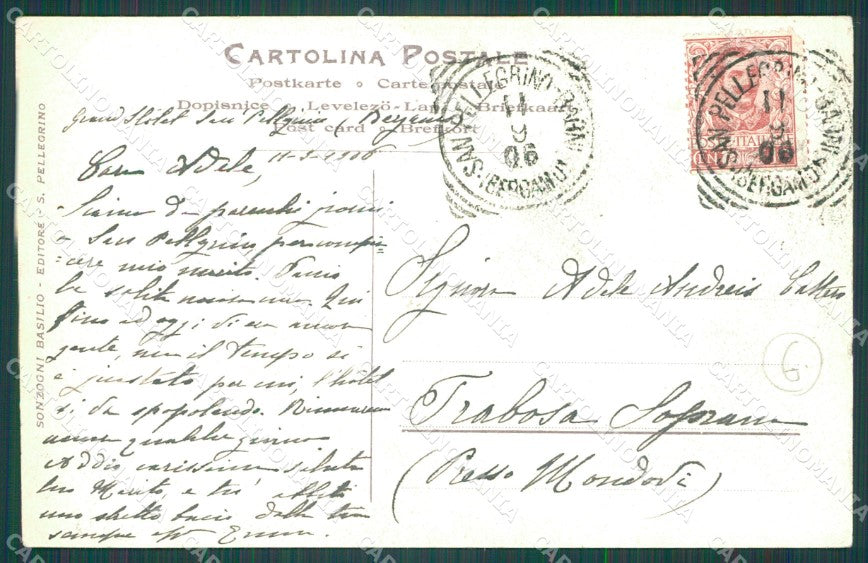 CARTOLINA POSTALE
Postkarte Carte postale
Dopisnice Levelező-Lap Briefkaart
Post card Brefkort
SONZOGNI BASILIO - EDITORE - S. PELLEGRINO
SAN PELLEGRINO BAGNI
11
9
06
(BERGAMO)
SAN PELLEGRINO BAGNI
11
9
06
(BERGAMO)
Grand Hotel San Pellegrino (Bergamo)
11-9-1906
Cara Adele,
Siamo da parecchi giorni
a San Pellegrino per compia=
=cere mio marito. Fanno
la solita Qui
fino ad oggi di era
gente, ma il tempo si
è guastato poi, l'hôtel
si da spopolando. Rimarremo
ancora qualche giorno
Addio, carissima saluta
tuo Marito, e tu abbiti
uno stretto bacio dalla tua
sempre Emma.
Signora Adele Andreis
Frabosa Soprana
(Presso Mondovì)
G
CARTOLINOMANIA